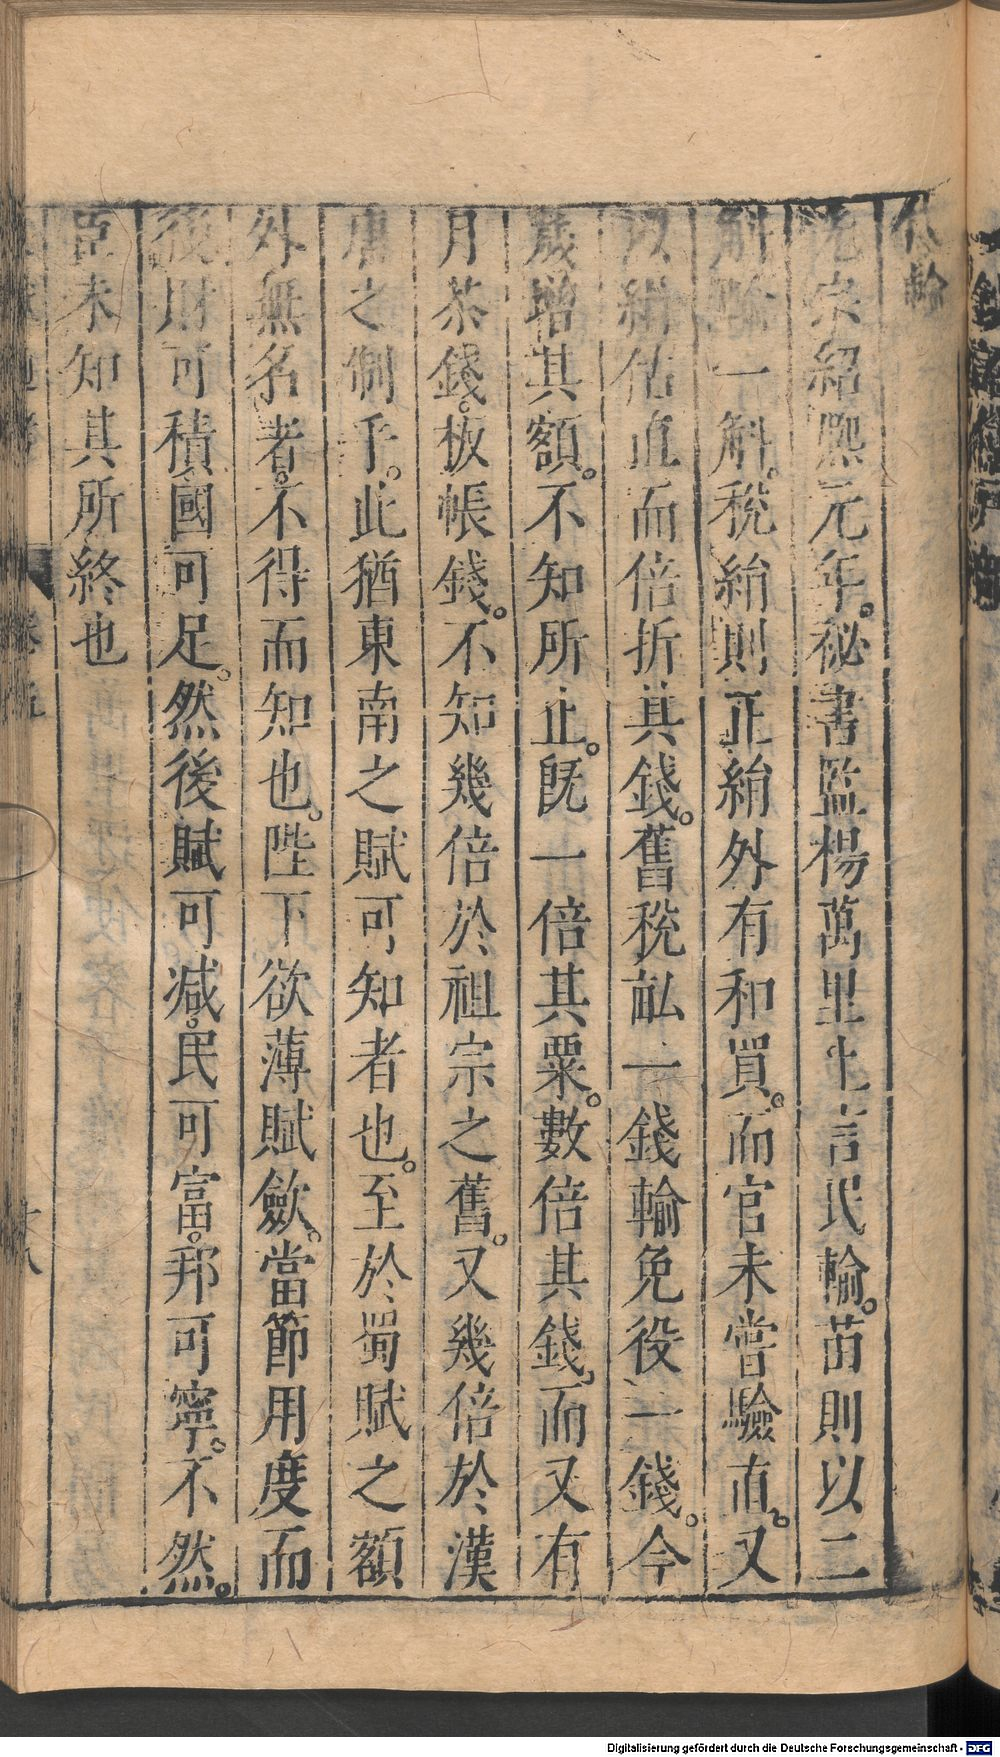 代輸
光宗紹熙元年。秘書監楊萬里上言民輸。苗則以二
斛輸一斛。稅絹則正絹外有和買。而官未嘗驗直。又
以絹估直而倍折其錢。舊稅畝一錢輸免役一錢。今
歲增其額。不知所止。旣一倍其粟。數倍其錢。而又有
月茶錢。板帳錢。不知幾倍於祖宗之舊。又幾倍於漢
唐之制乎。此猶東南之賦可知者也。至於蜀賦之額
外無名者。不得而知也。陛下欲薄賦斂。當節用度而
後財可積。國可足。然後賦可減。民可富。邦可寧。不然。
臣未知其所終也
卷
十八
Digitalisierung gefördert durch die Deutsche Forschungsgemeinschaft - DFG